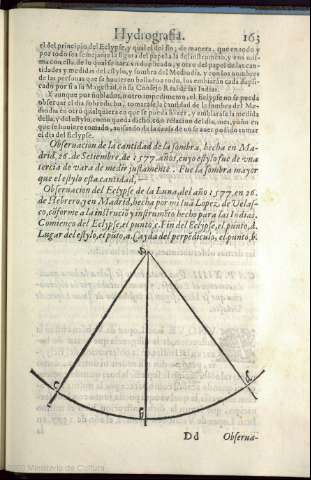 Hydrografia. 163
el del principio del Eclypse, y qual el del fin, de manera, que en todo y
por todo sea semejante la figura del papel a la del instrumento, y en la mis
ma con ella, de lo qual se hara vn duplicado, y otro del papel de las can
tidades y medidas del estylo, y sombra del Mediodia, y con los nombres
de las personas que se huuieren hallado a todo, los embiaràn cada dupli
cado por si a su Magestad, en su Consejo Real de las Indias.
Y aunque por ñublados, u otro impedimento, el Eclypse no se pueda
obseruar el dia sobredicho, tomarase la cantidad de la sombra del Me
diodia en otro qualquiera en que se pueda hazer, y embiarase la medida
della, y del estylo, como queda dicho, con relacion del dia, mes, y año en
que se huuiere tomado, auisando de la causa de no se auer podido tomar
el dia del Eclypse.
Obseruacion de la cantidad de la sombra, hecha en Ma-
drid, 26. de Setiembre, de 1577. años, cuyo estylo fue de vna
tercia de vara de medir justamente. Fue la sombra mayor
que el estylo esta cantidad,
Obseruacion del Eclypse de la Luna, del año 1577. en 26.
de Hebrero, y en Madrid, hecha por mi Iuã Lopez de Velas-
co, cõforme a la instrucciõ y instrumẽto hecho para las Indias.
Comienço del Eclypse, el punto, c. Fin del Eclypse, el punto, d.
Lugar del estylo, el pũto, a. Cayda del perpẽdiculo, el punto, b.
a
c
d
b
Dd Obserua-
Ministerio de Cultura